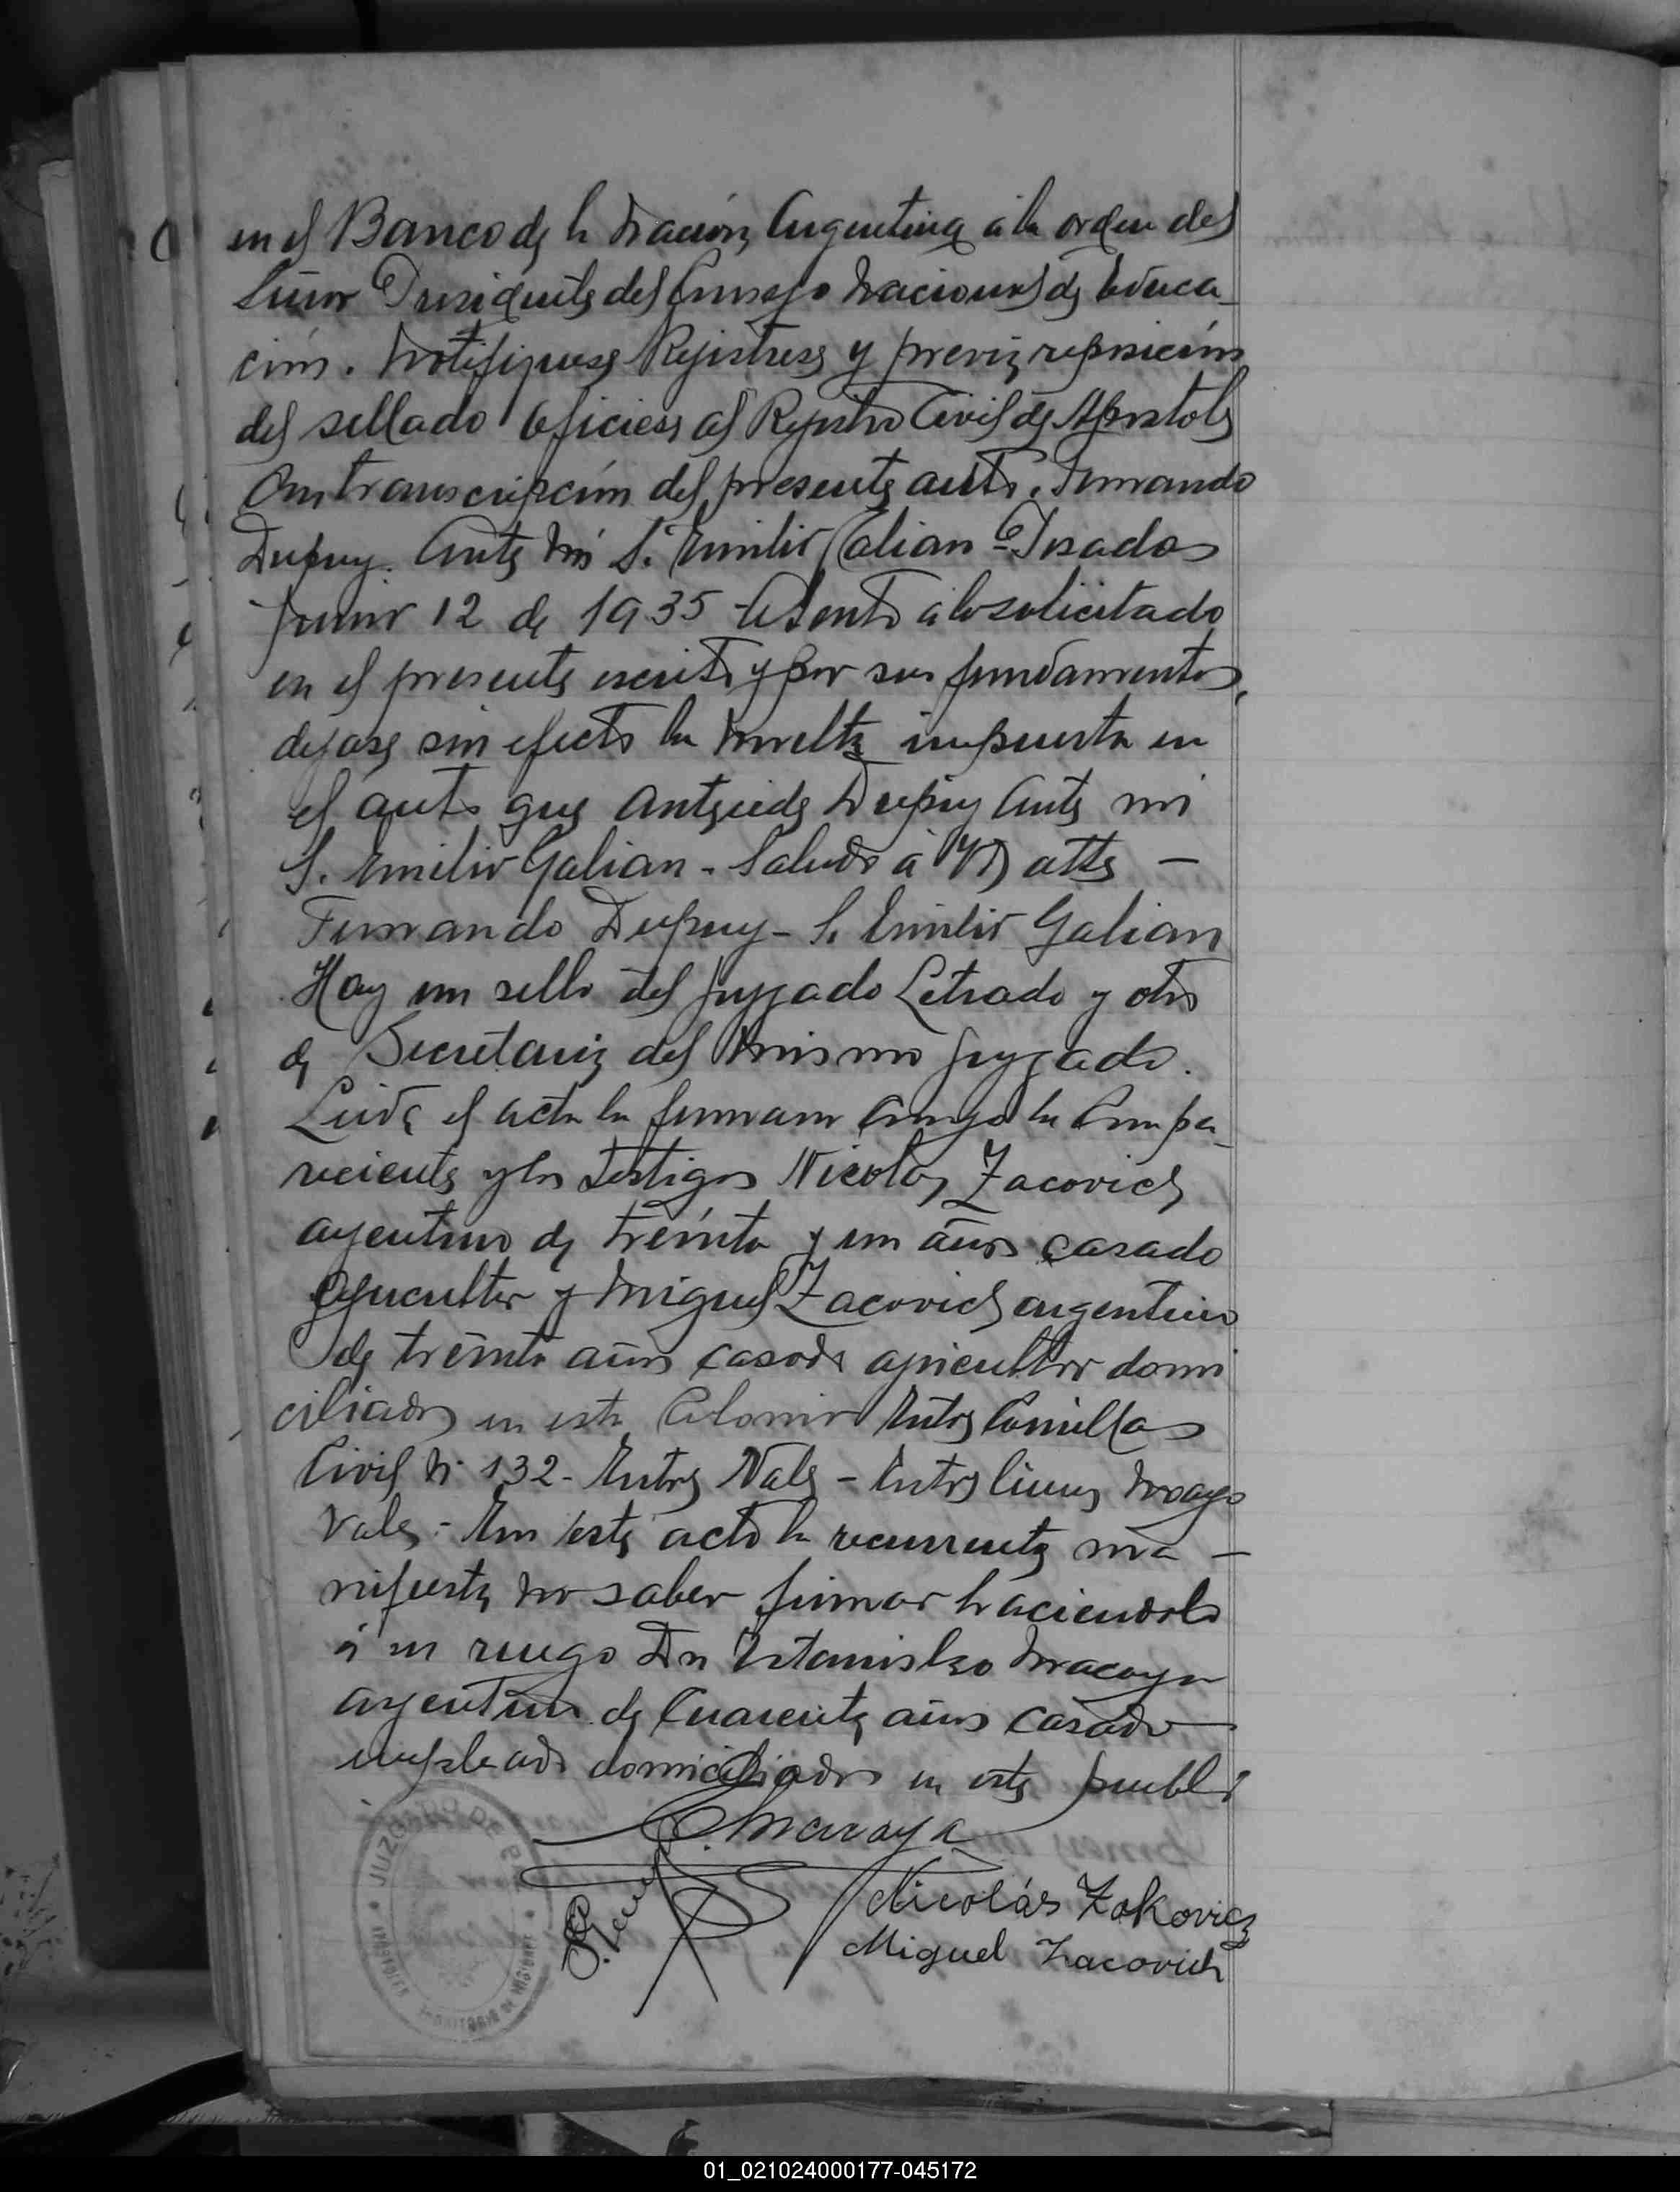 en el Banco de la Nacion Argentina á la orden del
Señor Presidente del Consejo Nacional de Educa_
ción. Notifiquese Rejistrese y previa reposicion
del sellado oficiese al Rejistro Civil de Apostoles
Con transcripción del presente auto. Fernando
Dupuy. Ante Mi S. Emilio Galian - Posadas
Junio 12 de 1935 - Atento á lo solicitado
en el presente escrito y por sus fundamentos,
dejase sin efecto la multa impuesta en
el auto que antecede Dupuy Ante mi
S. Emilio Galian - Saludo á Vd atte —
Fernando Dupuy - S. Emilio Galian
Hay un sello del Juzgado Letrado y otro
de Secretaria del mismo Juzgado.
Leida el acta la firmam conmigo la Compa_
reciente y los testigos Nicolas Zacovich
argentino de treinta y un años casado
agricultor y Miguel Zacovich argentino
de treinta años casado agricultor domi
ciliados en esta Colonia Entre Comillas
Civil N. 132 - Entre Vale - Entre lineas
Vale - Em este acto la recurrente ma —
nifiesta no saber firmar haciendolo
á su ruego Dn Estanislao
argentino de Cuarenta años casado
empleado domiciliado en este pueblo
Nicolás Zakovicz
Miguel Zacovich
JUZGADO DE PAZ
TERRITORIO DE MISIONES
01_021024000177-045172